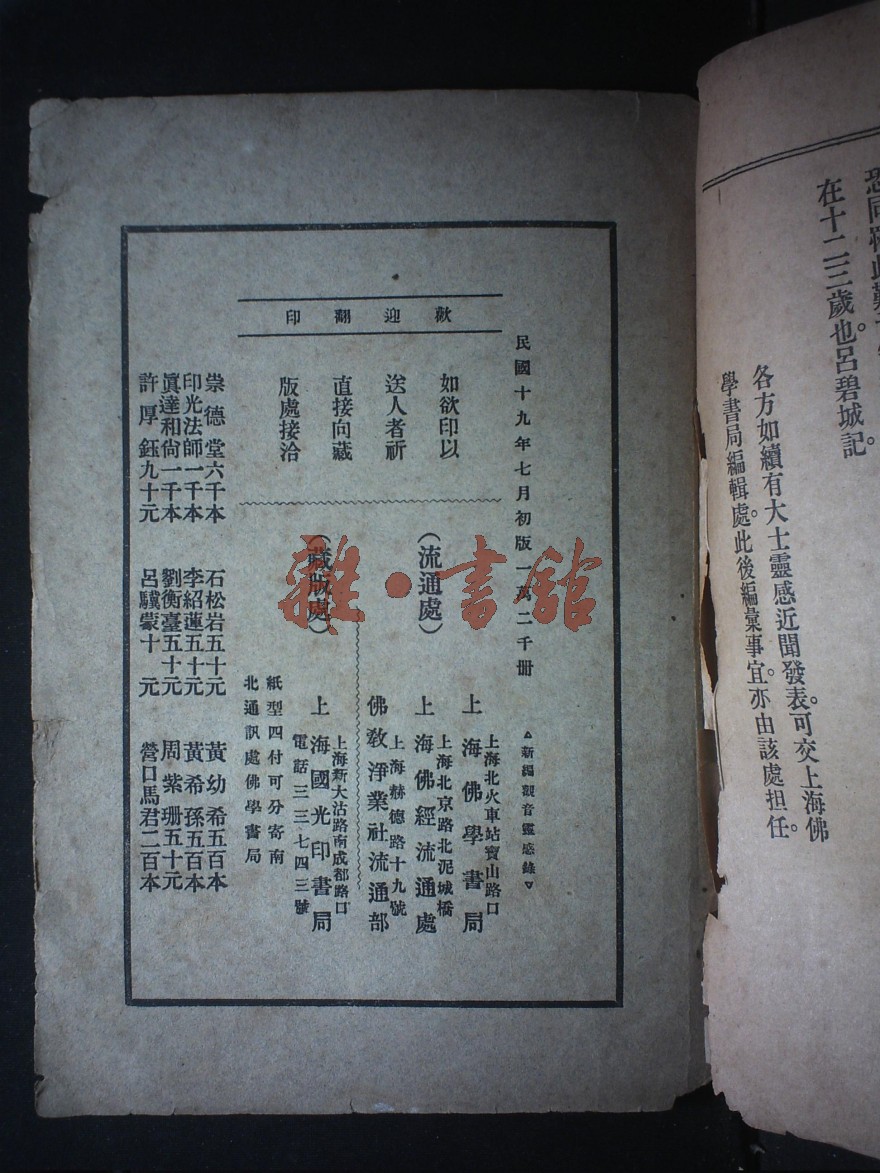 在十二三歲也。呂碧城記。
各方如續有大士靈感近聞發表。可交上海佛
學書局編輯處。此後編彙事宜。亦由該處担任。
民國十九年七月初版一萬二千冊
△新編觀音靈感錄▽
歡迎翻印
如欲印以
送人者祈
直接向藏
版處接洽
(流通處)
上海北火車站寶山路口
上海佛學書局
上海北京路北泥城橋
上海佛經流通處
上海赫德路十九號
佛敎淨業社流通部
(藏版處)
上海新大沽路南成都路口
上海國光印書局
電話三三七四三號
紙型四付可分寄南
北通訊處佛學書局
崇德堂六千本
石松岩五十元
黃幼希五百本
印光法師一千本
李紹蓮五十元
黃希孫五百本
眞達和尙一千本
劉衡臺五十元
周紫珊五十元
許厚鈺九十元
呂驥蒙十元
營口馬君二百本
雜·書舘